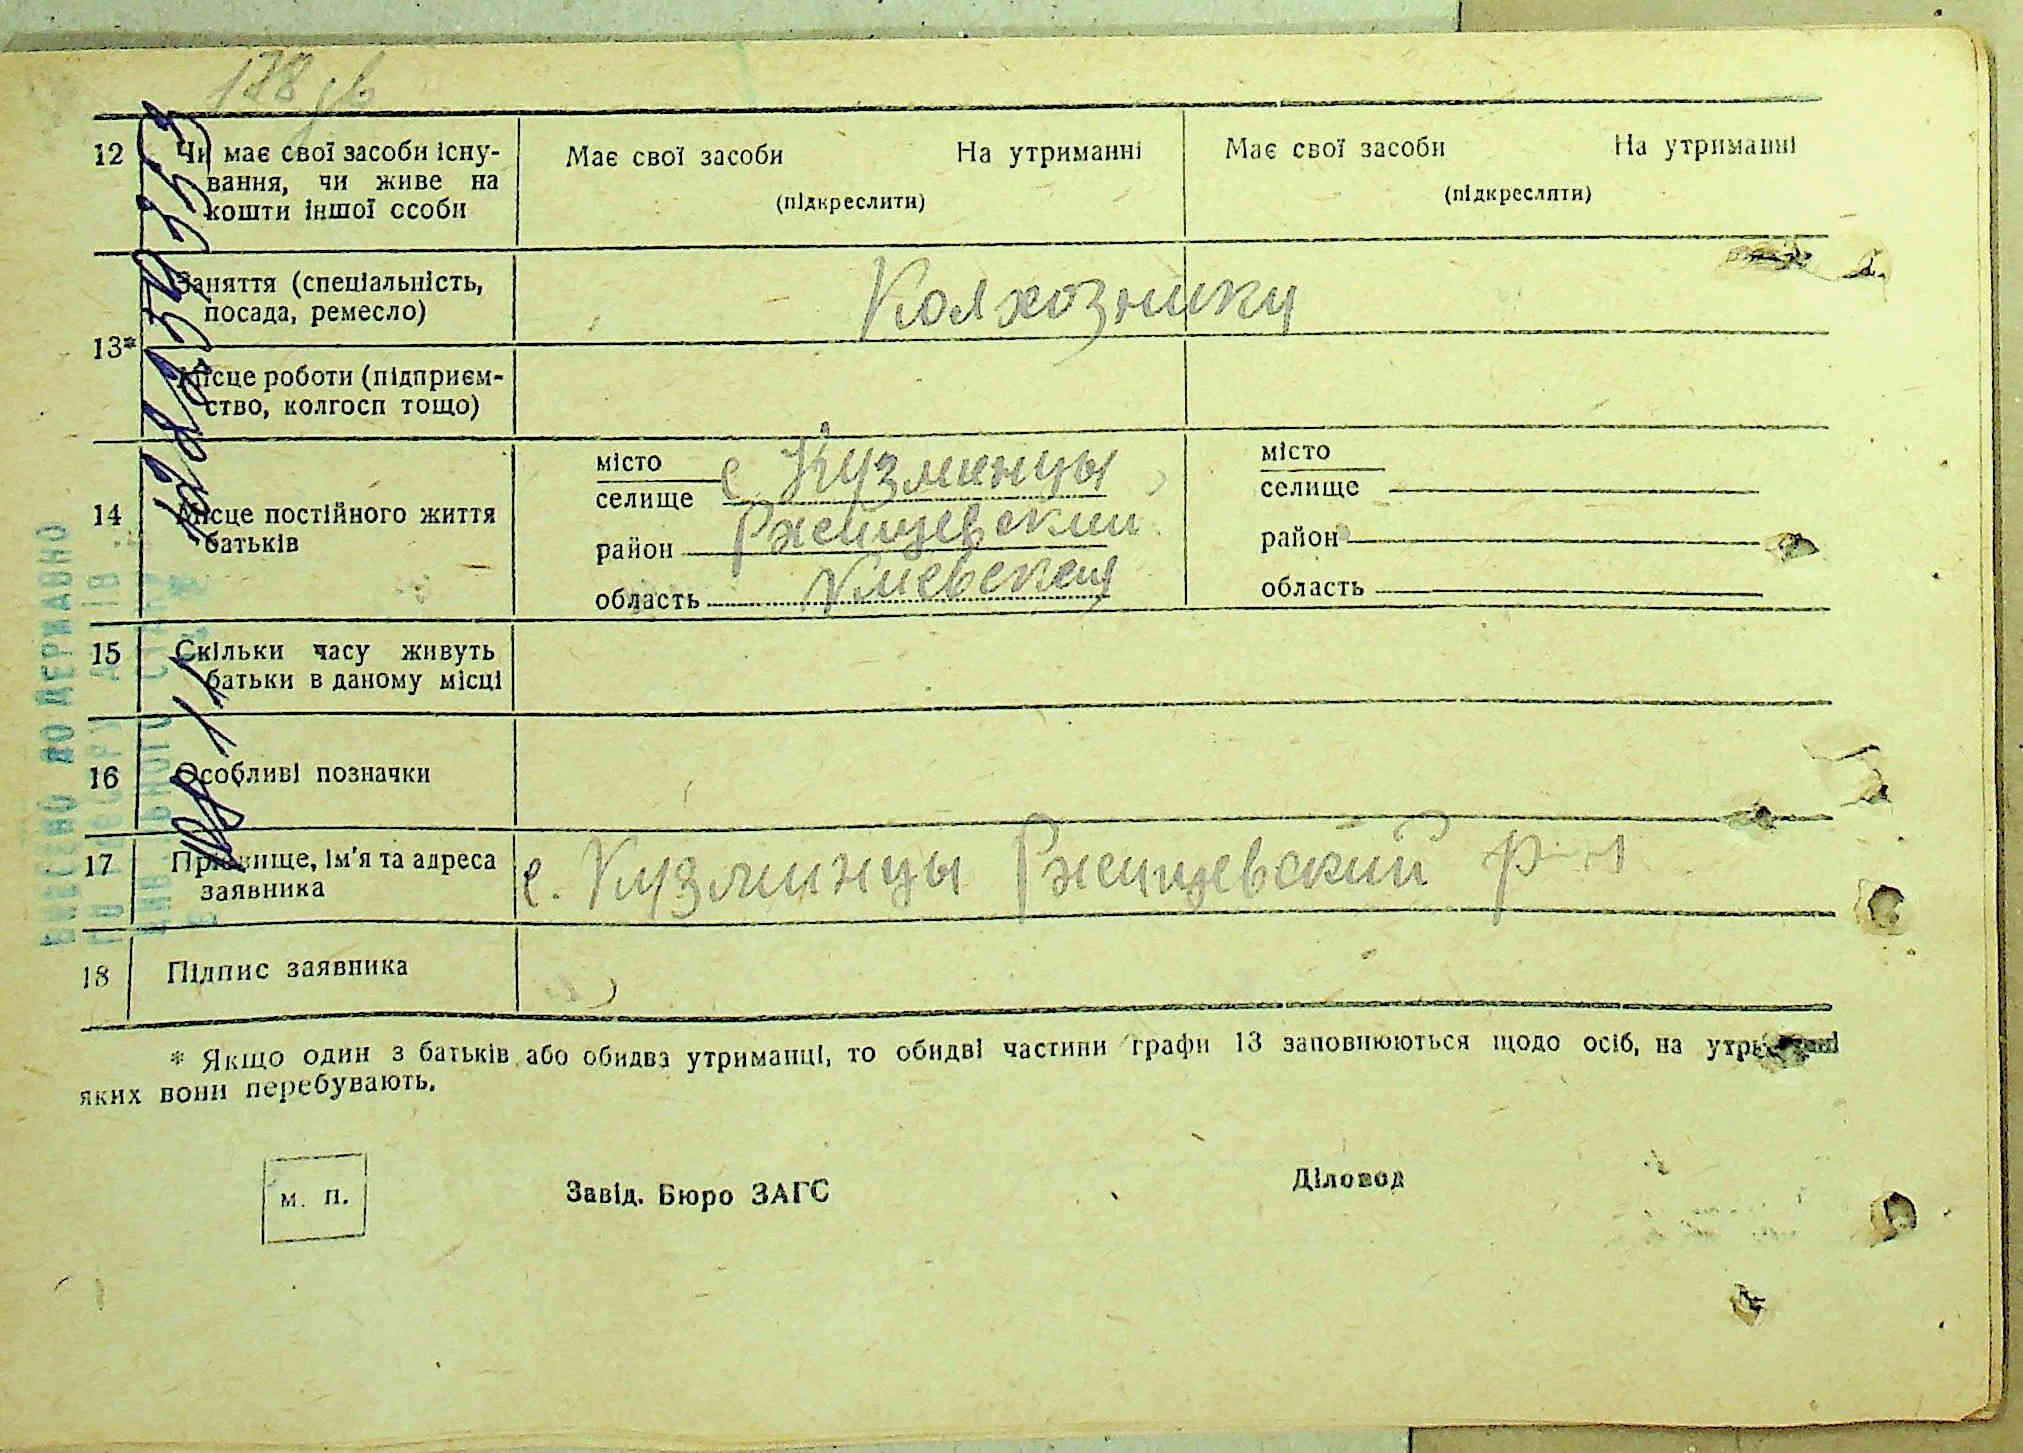 12 Чи має свої засоби існу-
вання, чи живе на
кошти іншої особи
Має свої засоби На утриманні
(підкреслити)
Має свої засоби На утриманні
(підкреслити)
13*
Заняття (спеціальність,
посада, ремесло)
Колхозники
Місце роботи (підприєм-
ство, колгосп тощо)
14 Місце постійного життя
батьків
місто
селище с. Кузминцы
район Ржищевский
область Киевская
місто
селище
район
область
15 Скільки часу живуть
батьки в даному місці
16 Особливі позначки
17 Прізвище, ім'я та адреса
заявника
с. Кузминцы Ржищевский р-н
18 Підпис заявника
* Якщо один з батьків або обидва утриманці, то обидві частини графи 13 заповнюються щодо осіб, на утриманні
яких вони перебувають.
м. п.
Завід. Бюро ЗАГС
Діловод
ВНЕСЕНО ДО ДЕРЖАВНО